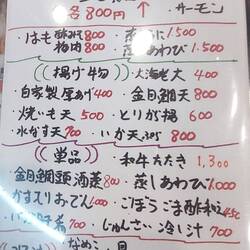 各800円 ↑ ・サーモン
・はも 酢みそ 800
梅肉 800 ・蒸しあわび 1.500
((揚げ物)) ・大海老天 400
・自家製厚あげ 400 ・金目鯛天 800
・焼いも天 500 ・とりから揚 600
・水なす天 700 ・いか天ぷら 800
((単品)) ・和牛たたき 1,300
金目鯛頭酒蒸 800 ・蒸しあわび 1.000
かすスリおでん 1.000 ・ごぼうごま酢和え 450
700 ・じゅんさい冷し汁 700